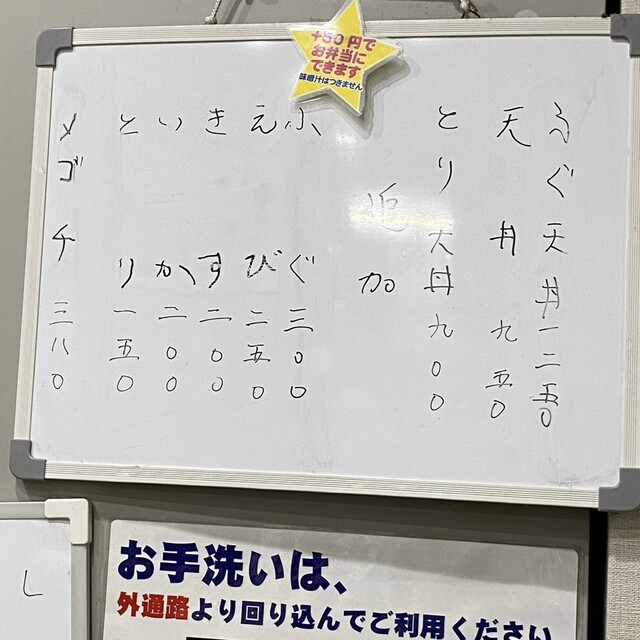 +50円で
お弁当に
できます
味噌汁はつきません
ふぐ天丼一二五〇
天丼 九五〇
とり天丼九〇〇
追加
ふぐ三〇〇
えび二五〇
きす二〇〇
いか二〇〇
とり一五〇
メゴチ三八〇
お手洗いは、
外通路より回り込んでご利用ください